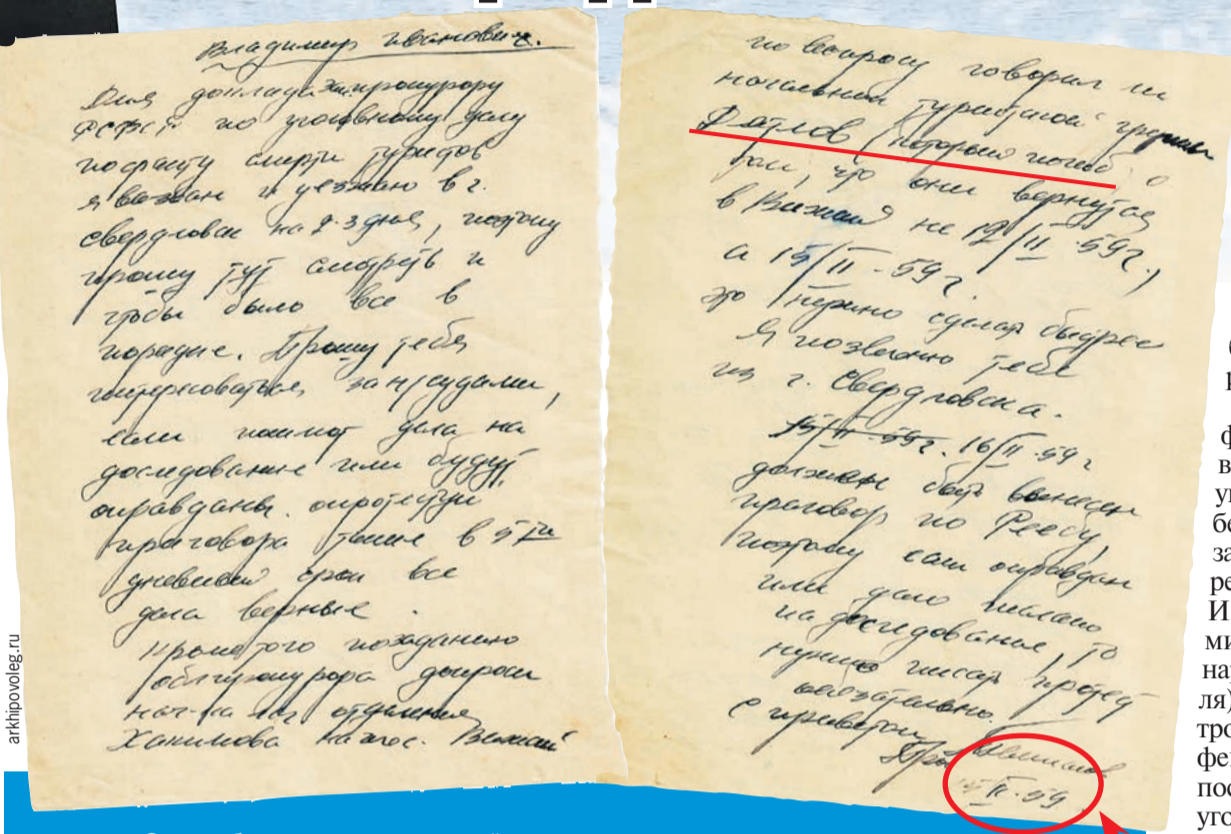 Владимир Иванович.
Для доклада зампрокурору
РСФСР по уголовному делу
по факту смерти туристов
я вызван и уезжаю в г.
Свердловск на 2-3 дня, поэтому
прошу тут смотреть и
чтобы было все в
порядке. Прошу тебя
интересоваться за н/судами,
если пошлют дела на
доследование или будут
оправданы. опротестуй
приговора также в 5ти
дневный срок все
дела верные.
Кроме того по заданию
облпрокурора допроси
нач-ка лаг отделения
Хакимова на пос. Вижай
по вопросу говорил ли
начальник туристской группы
Дятлов (который погиб) о
том, что они вернутся
в Вижай не 12/II-59г.,
а 15/II-59г.
это нужно сделать быстрее
я позвоню тебе
из г. Свердловска.
15/II-59г. 16/II-59г
должен быть вынесен
приговор по Реебу,
поэтому если оправдан
или дело послано
на доследование, то
нужно писать протест
обязательно.
с приветом
II-59
arkhipovoleg.ru
ф
в
бе
за
ре
И
ми
на
ля)
тро
фе
пос
уго